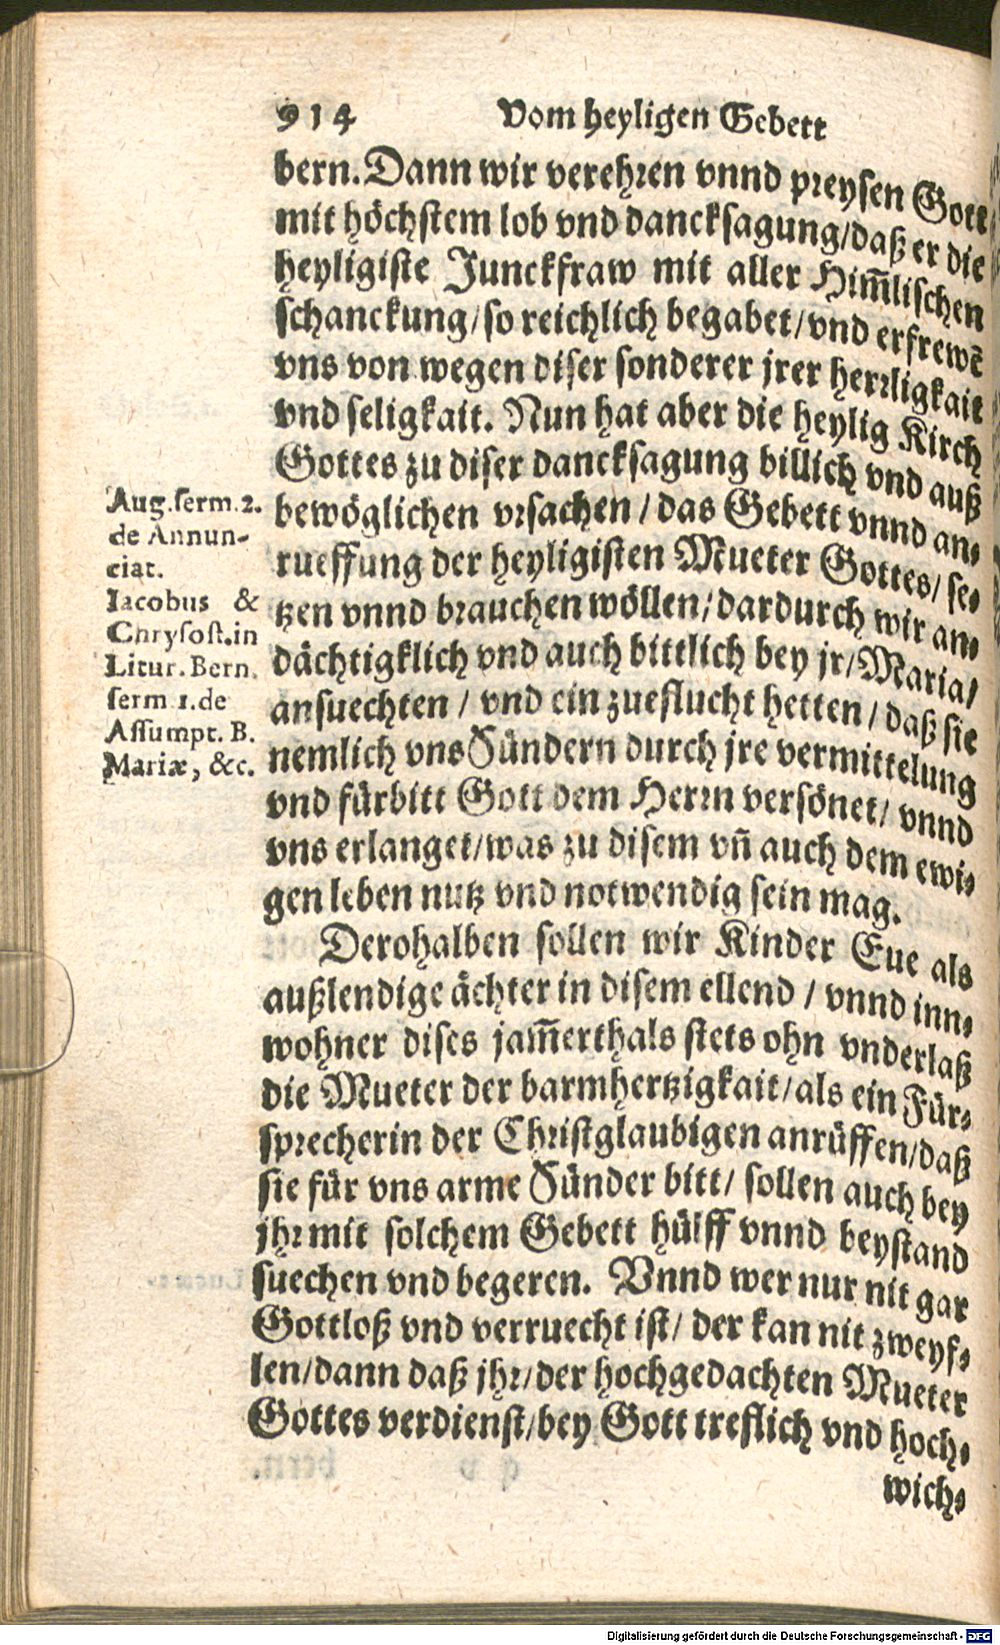 914 Vom heyligen Gebett
bern. Dann wir verehren vnnd preysen Gott
mit höchstem lob vnd dancksagung/daß er die
heyligiste Junckfraw mit aller Him̄lischen
schanckung/so reichlich begabet/vnd erfrewẽ
vns von wegen diser sonderer jrer herrligkait
vnd seligkait. Nun hat aber die heylig Kirch
Gottes zu diser dancksagung billich vnd auß
bewöglichen vrsachen/das Gebett vnnd an-
rueffung der heyligisten Mueter Gottes/se-
tzen vnnd brauchen wöllen/dardurch wir an-
dächtigklich vnd auch bittlich bey jr/Maria/
ansuechten/vnd ein zueflucht hetten/daß sie
nemlich vns Sündern durch jre vermittelung
vnd fürbitt Gott dem Herrn versönet/vnnd
vns erlanget/was zu disem vñ auch dem ewi-
gen leben nutz vnd notwendig sein mag.
Aug.serm.2.
de Annun-
ciat.
Iacobus &
Chrysost.in
Litur. Bern.
serm 1.de
Assumpt. B.
Mariæ, &c.
Derohalben sollen wir Kinder Eue als
außlendige ächter in disem ellend/vnnd inn-
wohner dises jam̄erthals stets ohn vnderlaß
die Mueter der barmhertzigkait/als ein Für-
sprecherin der Christglaubigen anrüffen/daß
sie für vns arme Sünder bitt/sollen auch bey
jhr mit solchem Gebett hülff vnnd beystand
suechen vnd begeren. Vnnd wer nur nit gar
Gottloß vnd verruecht ist/der kan nit zweyf-
len/dann daß jhr/der hochgedachten Mueter
Gottes verdienst/bey Gott treflich vnd hoch-
wich-
Digitalisierung gefördert durch die Deutsche Forschungsgemeinschaft - DFG